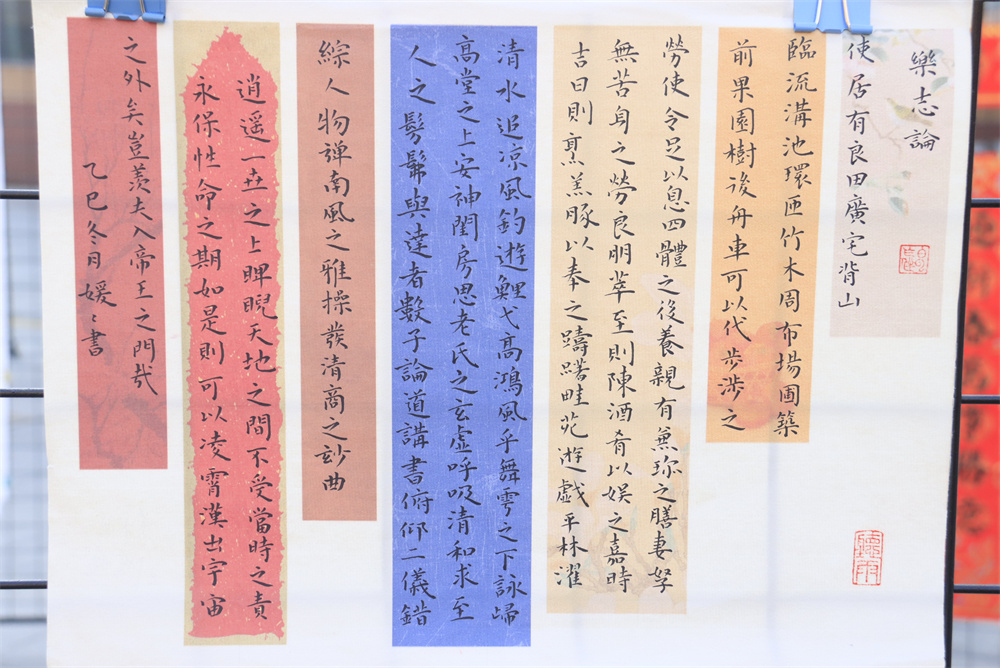 樂志論
使居有良田廣宅背山
臨流溝池環匝竹木周布場圃築
前果園樹後舟車可以代步涉之
勞使令足以息四體之後養親有兼珍之膳妻孥
無苦身之勞良朋萃至則陳酒肴以娛之嘉時
吉日則烹羔豚以奉之躊躇畦苑遊戲平林濯
清水追涼風釣遊鯉弋高鴻風乎舞雩之下詠歸
高堂之上安神閨房思老氏之玄虛呼吸清和求至
人之髣髴與達者數子論道講書俯仰二儀錯
綜人物彈南風之雅操發清商之玅曲
逍遥一世之上睥睨天地之間不受當時之責
永保性命之期如是則可以凌霄漢出宇宙
之外矣豈羨夫入帝王之門哉
乙巳冬月媛〻書